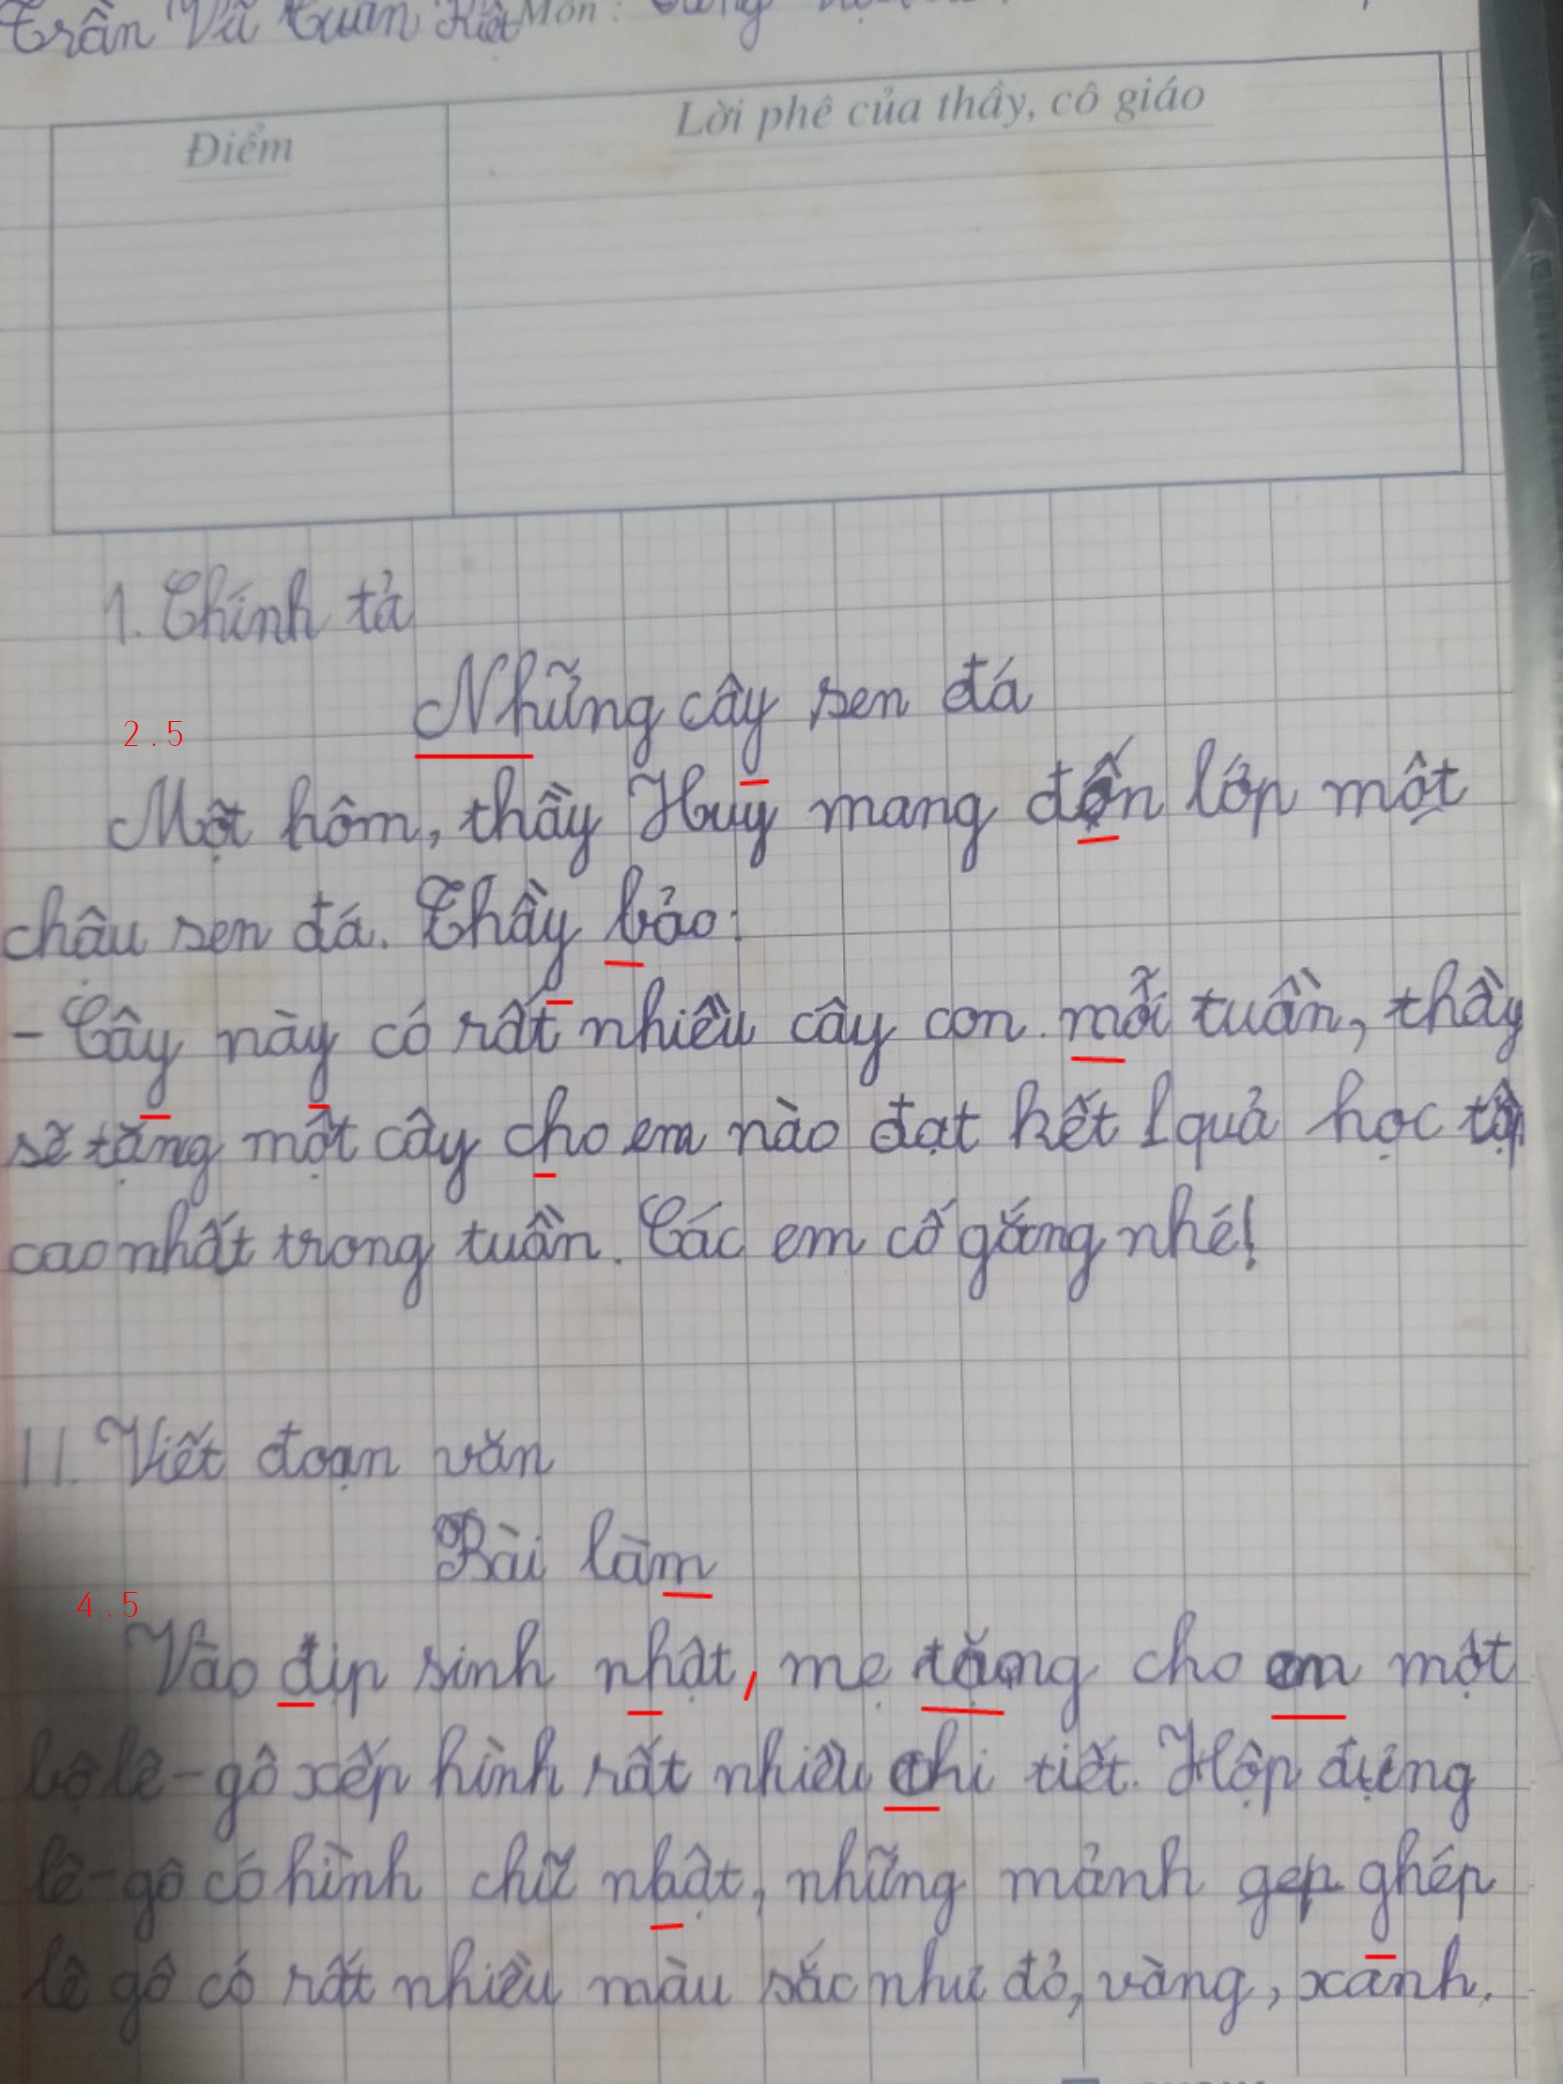 Trần Vũ Tuấn Kiệt Môn :
Điểm
Lời phê của thầy, cô giáo
1. Chính tả
Những cây sen đá
2.5
Một hôm, thầy Huy mang đến lớp một
chậu sen đá. Thầy bảo:
- Cây này có rất nhiều cây con. mỗi tuần, thầy
sẽ tặng một cây cho em nào đạt kết quả học tập
cao nhất trong tuần. Các em cố gắng nhé!
II. Viết đoạn văn
Bài làm
4.5
Vào địp sinh nhật, mẹ tặng cho em một
bộ lê-gô xếp hình rất nhiều chi tiết. Hộp đựng
lê-gô có hình chữ nhật, những mảnh gep ghép
lê gô có rất nhiều màu sắc như đỏ, vàng, xanh.